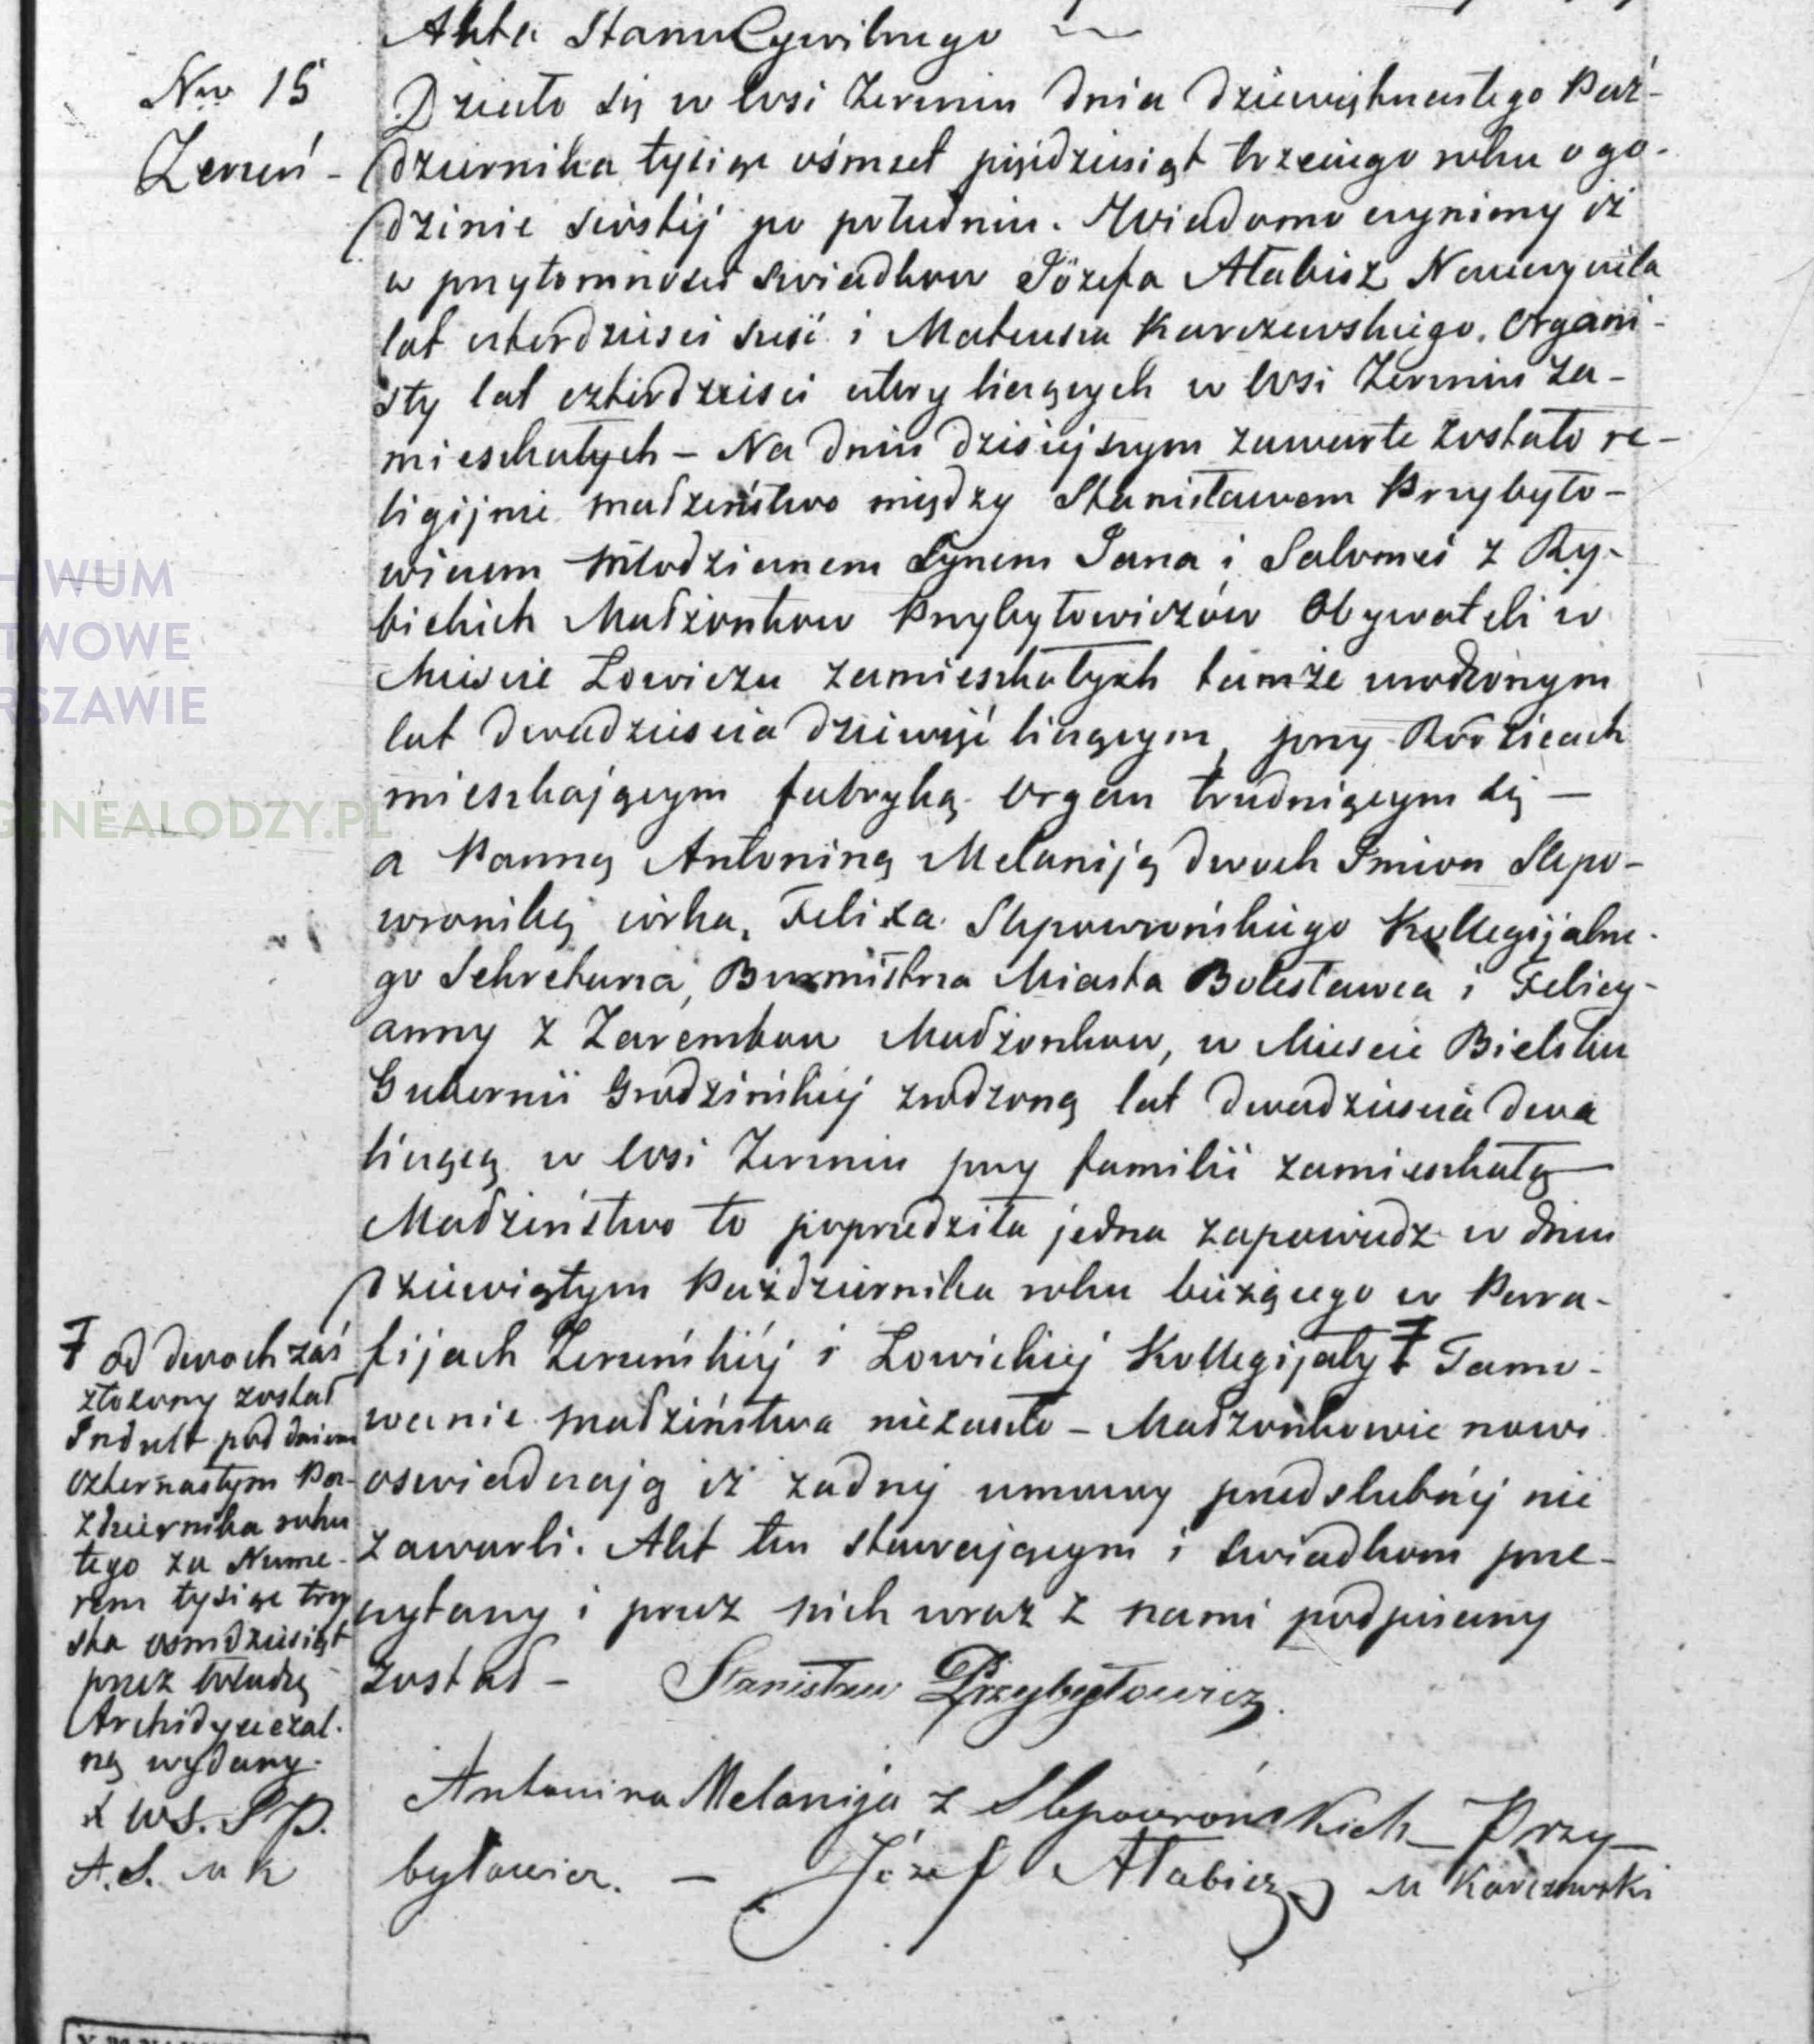 Akta Stanu Cywilnego
Nro 15
Zeruń -
Działo się w Wsi Zeruniu dnia dziewiętnastego Paź-
dziernika tysiąc ośmset pięćdziesiąt trzeciego roku o go-
dzinie szóstej po południu. Wiadomo czyniemy iż
w przytomności świadków Józefa Atabisz Nauczyciela
lat czterdzieści sześć i Mateusza Karczewskiego. Organi-
sty lat czterdzieści cztery liczących w Wsi Zeruniu za-
mieszkałych – Na dniu dzisiejszym zawarte zostało re-
ligijnie małżeństwo między Stanisławem Przybyło-
wiczem Młodzianem Synem Jana i Salomei z Ry-
bickich Małżonków Przybyłowiczów Obywateli w
Mieście Łowiczu zamieszkałych tamże urodzonym
lat dwadzieścia dziewięć liczącym, przy Rodzicach
mieszkającym fabryką Organ trudniącym się —
a Panną Antoniną Melaniją dwoch Imion Slepo-
wronską córką, Felixa Slepowrońskiego Kollegijalne-
go Sekretarza, Burmistrza Miasta Bolesławca i Felicy-
anny z Zarembow Małżonkow, w Mieście Bielsku
Gubernii Grodzińskiej zrodzoną lat dwadzieścia dwa
liczącą w Wsi Zeruniu przy familii zamieszkałą
Małżeństwo to poprzedziła jedna zapowiedz w dniu
dziewiątym Października roku bieżącego w Para-
fijach Zeruńskiej i Łowickiej Kollegijaty Ŧ Tamo-
wanie małżeństwa nie zaszło – Małżonkowie nowi
oswiadczają iż żadnej umowy przedslubnej nie
zawarli. Akt ten stawającym i swiadkom prze-
czytany i przez nich wraz z nami podpisany
został –
Ŧ od dwoch zaś
złożony został
Indult pod dniem
czternastym Pa-
ździernika roku
tego za Nume-
rem tysiąc trzy
sta ośmdziesiąt
przez Władzę
Archidyecezal-
ną wydany.
X W S. S P.
A. S. M K
Stanisław Przybyłowicz.
Antonina Melanija z Slepowrońskich Przy-
byłowicz. – Józef Atabisz M Karczewski